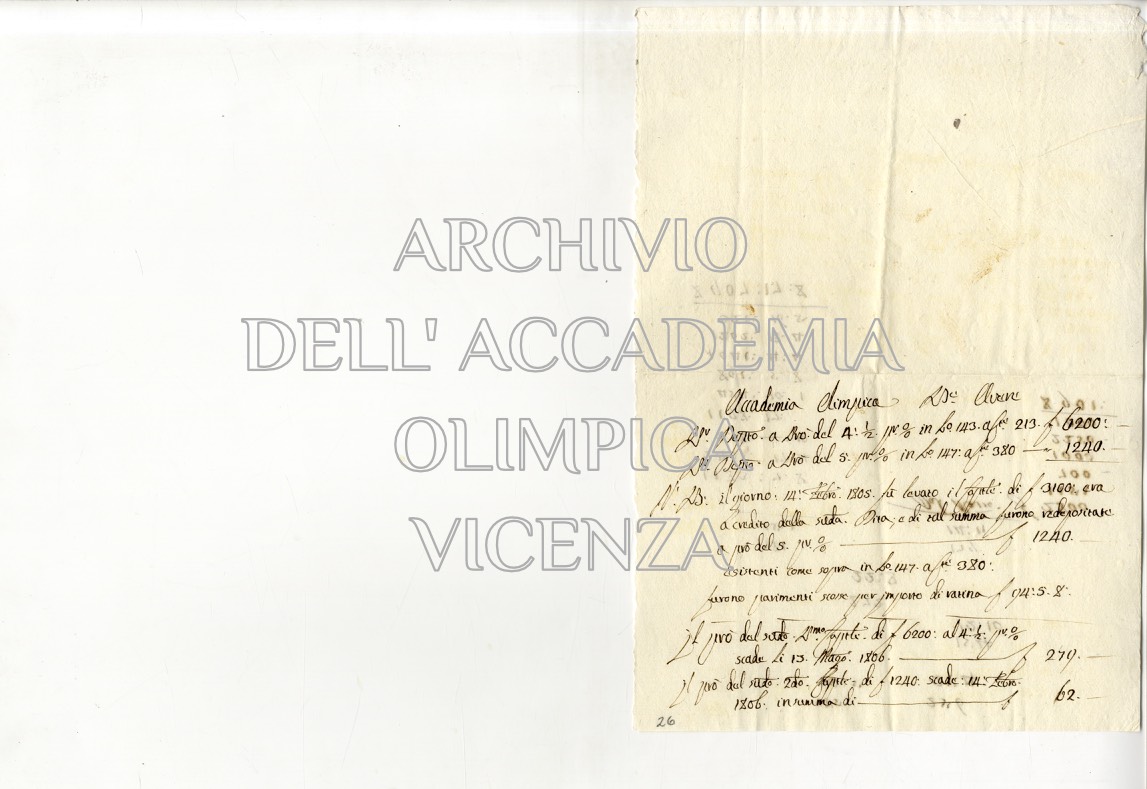 ARCHIVIO
DELL' ACCADEMIA
OLIMPICA
VICENZA
Accademia Olimpica Dee Avere
Deposto. a Prò del 4: ½ pr. % in Lo. 143. a Cte 213. f 6200: —
a Prò del 5. pr. % in Lo. 147: a Cte 380 — 1240. —
N: B: il giorno: 14: Febro. 1805. fù levato il Capitle. di f 3100: era
a credito della sudta. Dita; e di tal summa furono redepositate
a prò del 5. pr. % — f 1240. —
esistenti come sopra in Lo. 147. a Cte 380:
furono parimenti scose per importo di ratina f 94: 5. 8:
Il prò del sudto. Pmo. Capitle. di f 6200: al 4: ½ pr. %
scade li 13. Maggo. 1806. — f 279. —
Il prò del sudto. 2do. Capitle. di f 1240 scade: 14: Febro.
1806: in summa di — f 62. —
26